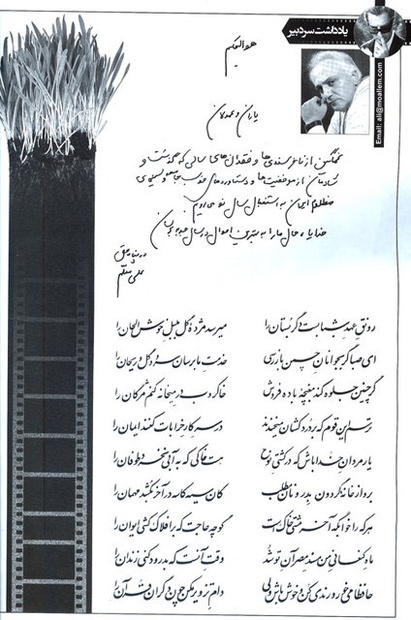 یادداشت سردبیر
Email: ali@moallem.com
هو الحکیم
یاران و همدلان
غمگین از ناخرسندی‌ها و فقدان‌های سالی که گذشت و
شادمان از موفقیت‌ها و دستاوردهای جامعه و سینمای
مظلوم ایران به استقبال سال نو می‌رویم
خدایا، حال ما را به بهترین احوال در سال جدید برسان
در پناه حق
علی معلم
رونق عهد شبابست دگر بستان را میرسد مژده گل بلبل خوش الحان را
ای صبا گر بجوانان چمن بازرسی خدمت ما برسان سرو و گل و ریحان را
گر چنین جلوه کند مغبچه باده فروش خاکروب در میخانه کنم مژگان را
ترسم این قوم که بر دردکشان میخندند در سر کار خرابات کنند ایمان را
یار مردان خدا باش که در کشتی نوح هست خاکی که به آبی نخرد طوفان را
برو از خانه گردون بدر و نان مطلب کان سیه کاسه در آخر بکشد مهمان را
هر که را خوابگه آخر مشتی خاک است گو چه حاجت که بر افلاک کشی ایوان را
ماه کنعانی من مسند مصر آن تو شد وقت آنست که بدرود کنی زندان را
حافظا می خور و رندی کن و خوش باش ولی دام تزویر مکن چون دگران قرآن را